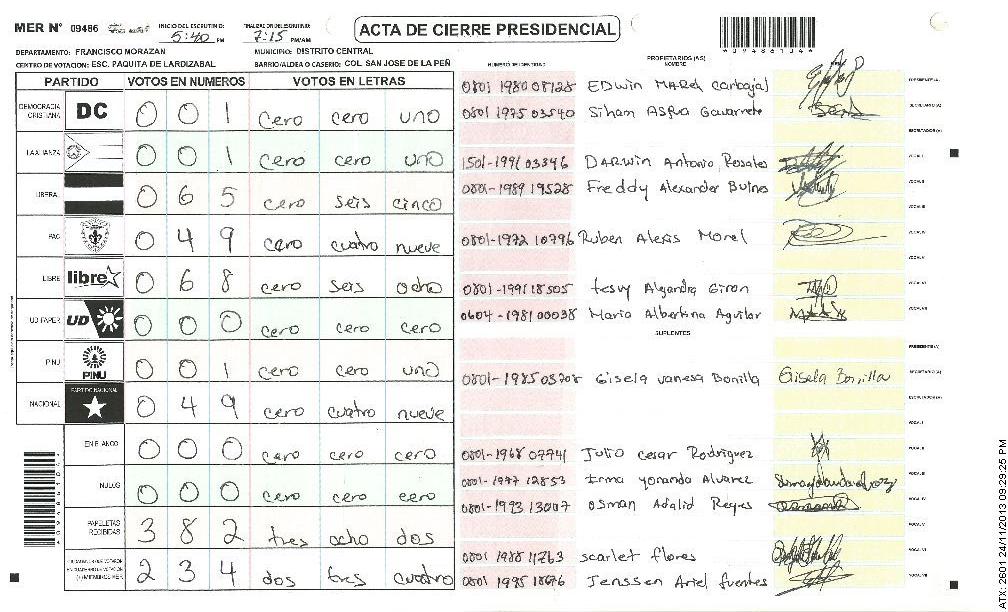 MER Nº 09486
INICIO DEL ESCRUTINIO:
5:40 PM
FINALIZACION DEL ESCRUTINIO:
7:15 PM/AM
ACTA DE CIERRE PRESIDENCIAL
DEPARTAMENTO: FRANCISCO MORAZAN
MUNICIPIO: DISTRITO CENTRAL
CENTRO DE VOTACION: ESC. PAQUITA DE LARDIZABAL
BARRIO/ALDEA O CASERIO: COL. SAN JOSE DE LA PEÑ
PARTIDO VOTOS EN NUMEROS VOTOS EN LETRAS
DEMOCRACIA CRISTIANA DC 0 0 1 cero cero uno
LA ALIANZA 0 0 1 cero cero uno
LIBERAL 0 6 5 cero seis cinco
PAC 0 4 9 cero cuatro nueve
LIBRE libre 0 6 8 cero seis ocho
UD FAPER UD 0 0 0 cero cero cero
PINU PINU 0 0 1 cero cero uno
NACIONAL PARTIDO NACIONAL 0 4 9 cero cuatro nueve
EN BLANCO 0 0 0 cero cero cero
NULOS 0 0 0 cero cero cero
PAPELETAS RECIBIDAS 3 8 2 tres ocho dos
(+) MIEMBROS MER 2 3 4 dos tres cuatro
NUMERO DE IDENTIDAD
PROPIETARIOS (AS)
NOMBRE
0801 1980 08128 EDwin MARel Carbajal PRESIDENTE (A)
0801 1975 03540 Siham Asfua Gavarrete SECRETARIO (A)
ESCRUTADOR (A)
1501-1991 03396 DARWIN Antonio Rosales VOCAL I
0801-1989 19528 Freddy Alexander Bulnes VOCAL II
VOCAL III
0801-1972 10796 Ruben Alexis Morel VOCAL IV
VOCAL V
0801-1991 18505 Alejandra Giron VOCAL VI
0604-1981 00038 Maria Albertina Aguilar VOCAL VII
SUPLENTES
PRESIDENTE (A)
0801-1985 03708 Gisela vanesa Bonilla Gisela Bonilla SECRETARIO (A)
ESCRUTADOR (A)
VOCAL I
0801-1968 07741 Julio cesar Rodriguez VOCAL II
0801-1977 12853 Irma yolanda Alvarez VOCAL III
0801-1993 13007 osman Adalid Reyes VOCAL IV
VOCAL V
0801 1988 11763 scarlet flores VOCAL VI
0801 1985 18676 Jenssen Ariel fuentes VOCAL VII
ATX-2601 24/11/2013 09:29:25 PM